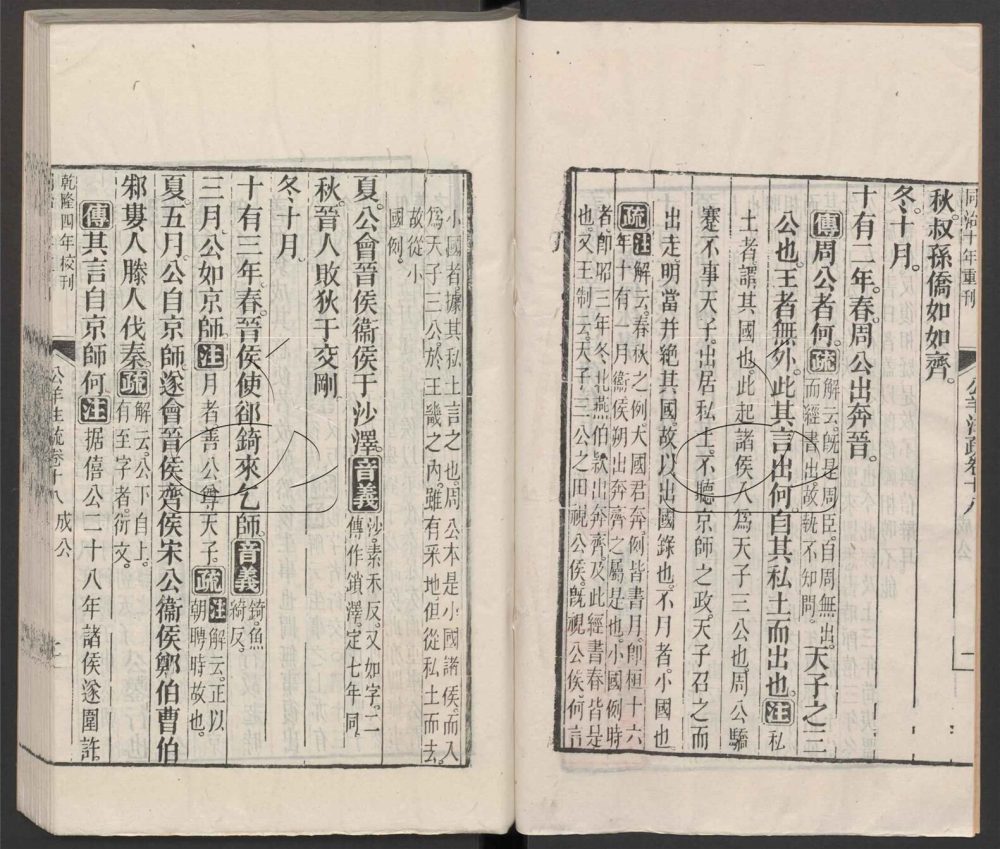 同治十年重刊
秋。叔孫僑如如齊。
冬。十月。
十有二年。春。周公出奔晉。
傳周公者何。疏解云。旣是周臣。自周無出。
而經書出。故執不知問。天子之三
公也。王者無外。此其言出何。自其私土而出也。注私
土者。謂其國也。此起諸侯入爲天子三公也。周公驕
蹇不事天子。出居私土。不聽京師之政。天子召之而
出走。明當并絶其國。故以出國錄也。不月者。小國也。
疏注解云。春秋之例。大國君奔例皆書月。卽桓十六
年十有一月。衞侯朔出奔齊之屬是也。小國例時
者。卽昭三年冬。北燕伯款出奔齊。及此經書春皆是
也。又王制云。天子三公之田視公侯。旣視公侯。何言
小國者。據其私土言之也。周公本是小國諸侯。而入
爲天子三公。於王畿之內。雖有采地。但從私土而去。
故從小
國例。
夏。公會晉侯衞侯于沙澤。音義沙。素禾反。又如字。二
傳作鎖澤。定七年同。
秋。晉人敗狄于交剛
冬十月。
十有三年。春。晉侯使郤錡來乞師。音義錡。魚
綺反。
三月。公如京師。注月者。善公尊天子。疏注解云。正以
朝聘時故也。
夏。五月。公自京師。遂會晉侯齊侯宋公衞侯鄭伯曹伯
邾婁人滕人伐秦。疏解云。公下自上。
有至字者。衍文。
傳其言自京師何。注据僖公二十八年諸侯遂圍許。
公羊注疏卷十八 成公
乾隆四年校刊